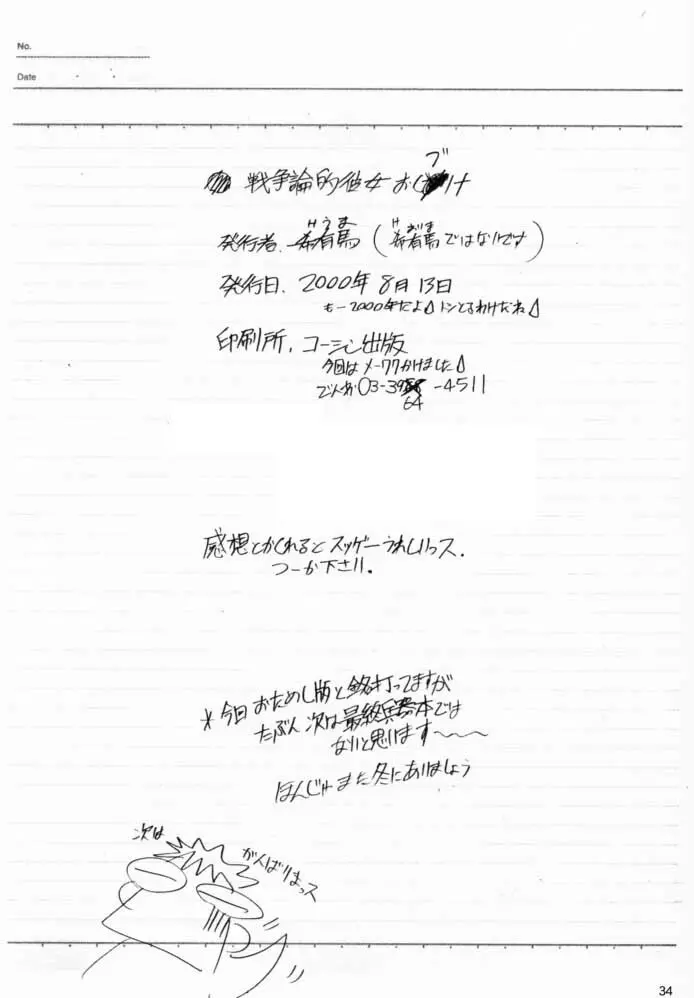 No.
Date
戦争論的彼女 おしブけ
発行者. 希有馬 (希有馬ではないです)
けうま
発行日. 2000年 8月 13日
もー2000年だよ トシとるわけだね
印刷所. コーシン出版
今回はメーワクかけました
でんわ 03-3964-4511
感想とかくれると スッゲーうれしいっス.
つーか下さい.
*今日 おためし版と銘打ってますが
たぶん 次は最終兵器本では
ないと思います〜〜
ほんじゃまた冬にあいましょう
次は
がんばりまっス
34